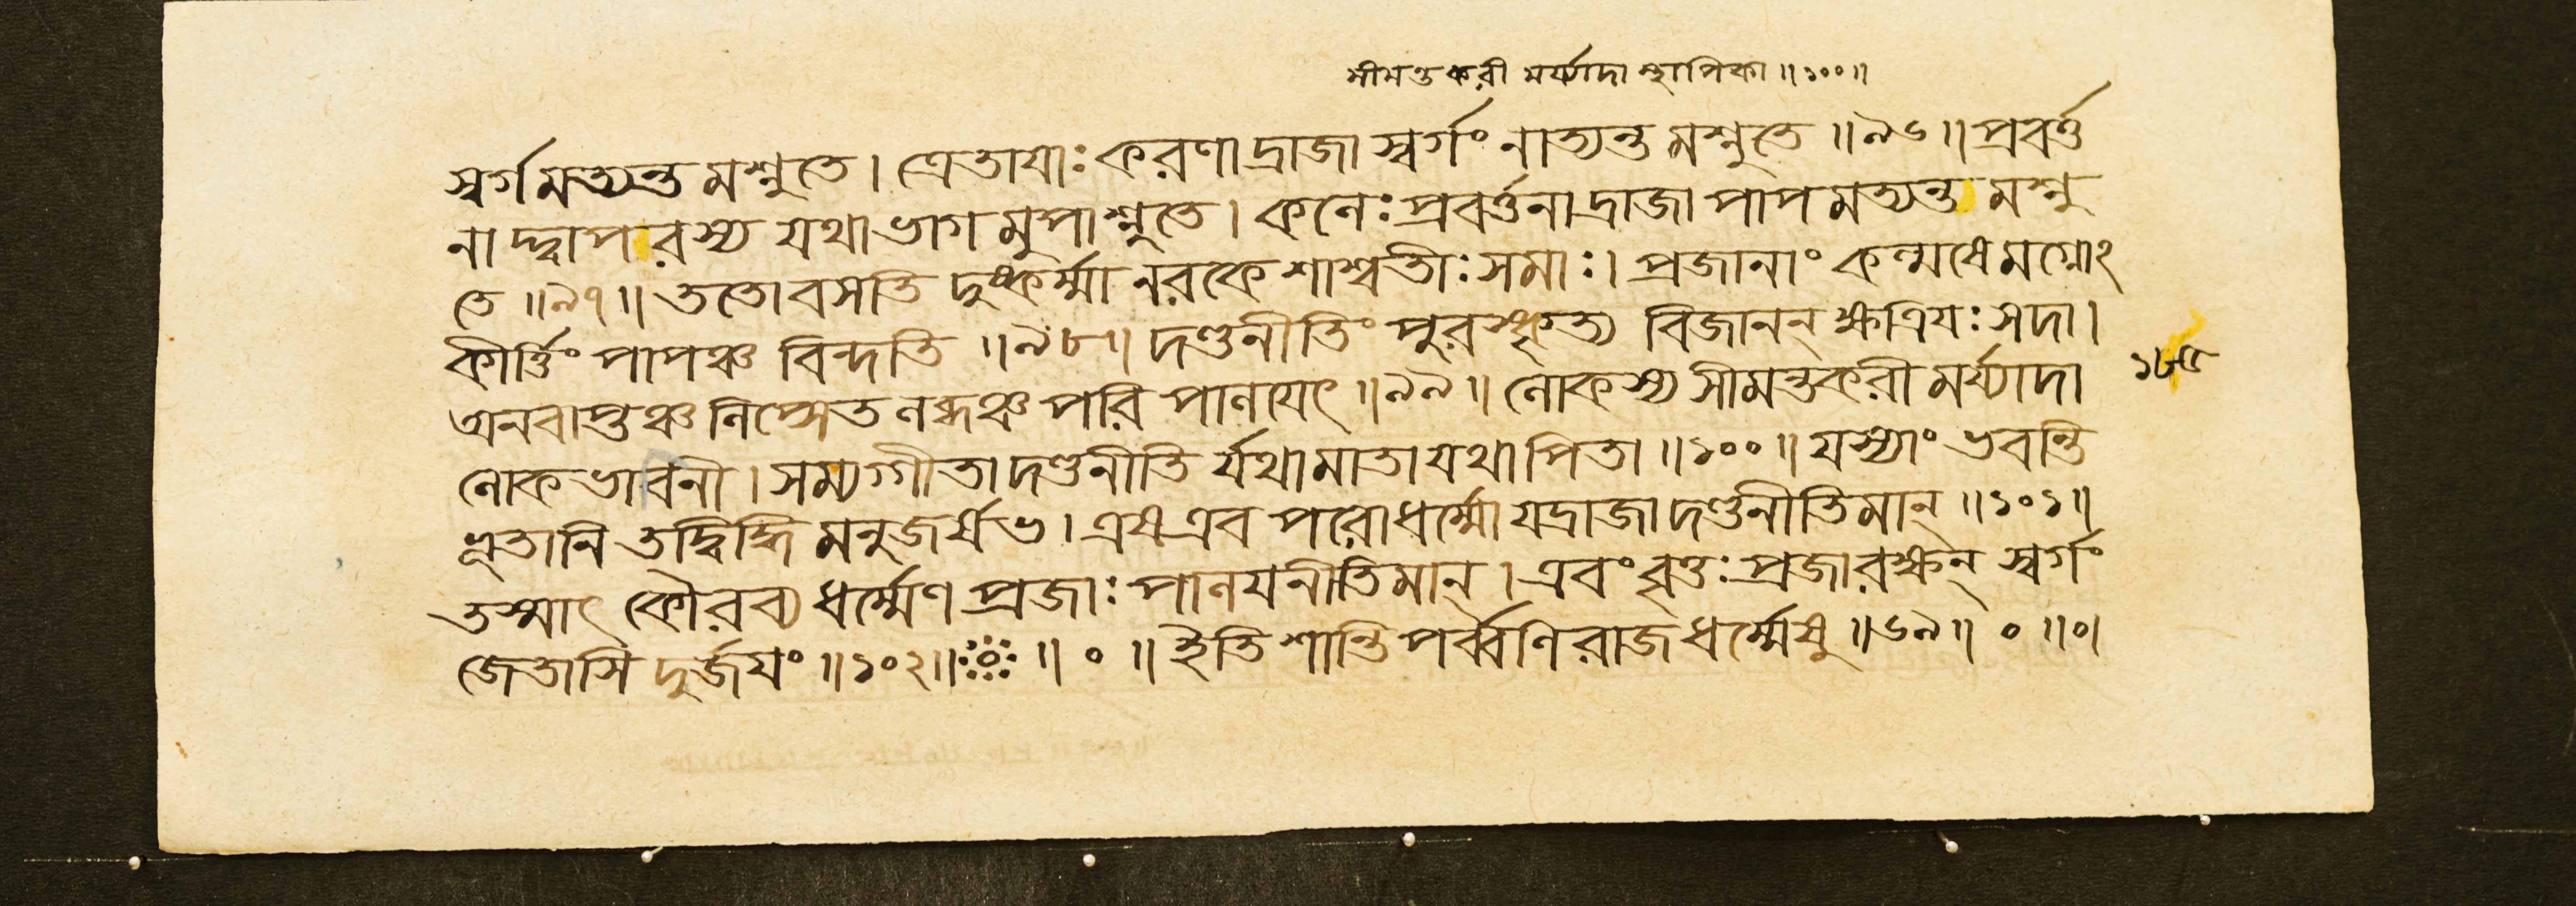 সীমন্তকরী মর্য্যাদা স্থাপিকা ॥ ১০০ ॥
স্বর্গমত্যন্তমশ্নুতে । ত্রেতাযাঃ করণাদ্রাজা স্বর্গং নাত্যন্তমশ্নুতে ॥ ৯৬ ॥ প্রবর্ত্ত
নাদ্দ্বাপরস্য যথাভাগমুপাশ্নুতে । কলেঃ প্রবর্ত্তনাদ্রাজা পাপমত্যন্তমশ্নু
তে ॥ ৯৭ ॥ ততো বসতি দুষ্কর্ম্মা নরকে শাশ্বতীঃ সমাঃ । প্রজানাং কল্মষে মগ্নোঽ
কীর্ত্তিং পাপঞ্চ বিন্দতি ॥ ৯৮ ॥ দণ্ডনীতিং পুরস্কৃত্য বিজানন্ ক্ষত্রিযঃ সদা ।
অনবাপ্তঞ্চ লিপ্সেত লব্ধঞ্চ পরিপালযেৎ ॥ ৯৯ ॥ লোকস্য সীমন্তকরী মর্য্যাদা
লোকভাবনী । সম্যগ্গীতা দণ্ডনীতির্যথা মাতা যথা পিতা ॥ ১০০ ॥ যস্যাং ভবন্তি
ভূতানি তদ্বিদ্ধি মনুজর্ষভ । এষ এব পরো ধর্ম্মো যদ্রাজা দণ্ডনীতিমান্ ॥ ১০১ ॥
তস্মাৎ কৌরব্য ধর্ম্মেণ প্রজাঃ পালয নীতিমান্ । এবংবৃত্তঃ প্রজা রক্ষন্ স্বর্গং
জেতাসি দুর্জযং ॥ ১০২ ॥ ॥ ০ ॥ ইতি শান্তিপর্ব্বণি রাজধর্ম্মেষু ॥ ৬৯ ॥ ০ ॥ ০ ।